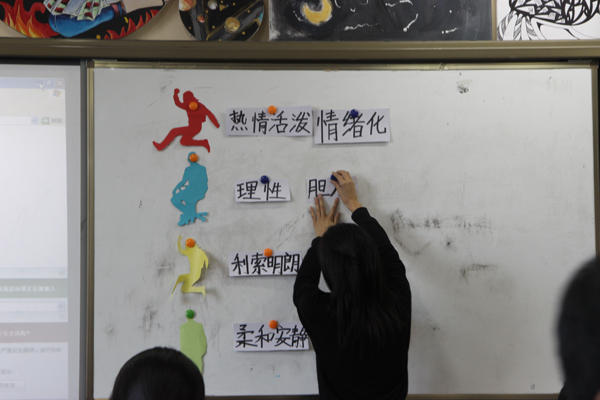 热情活泼 情绪化
理性 胆
利索明朗
柔和安静